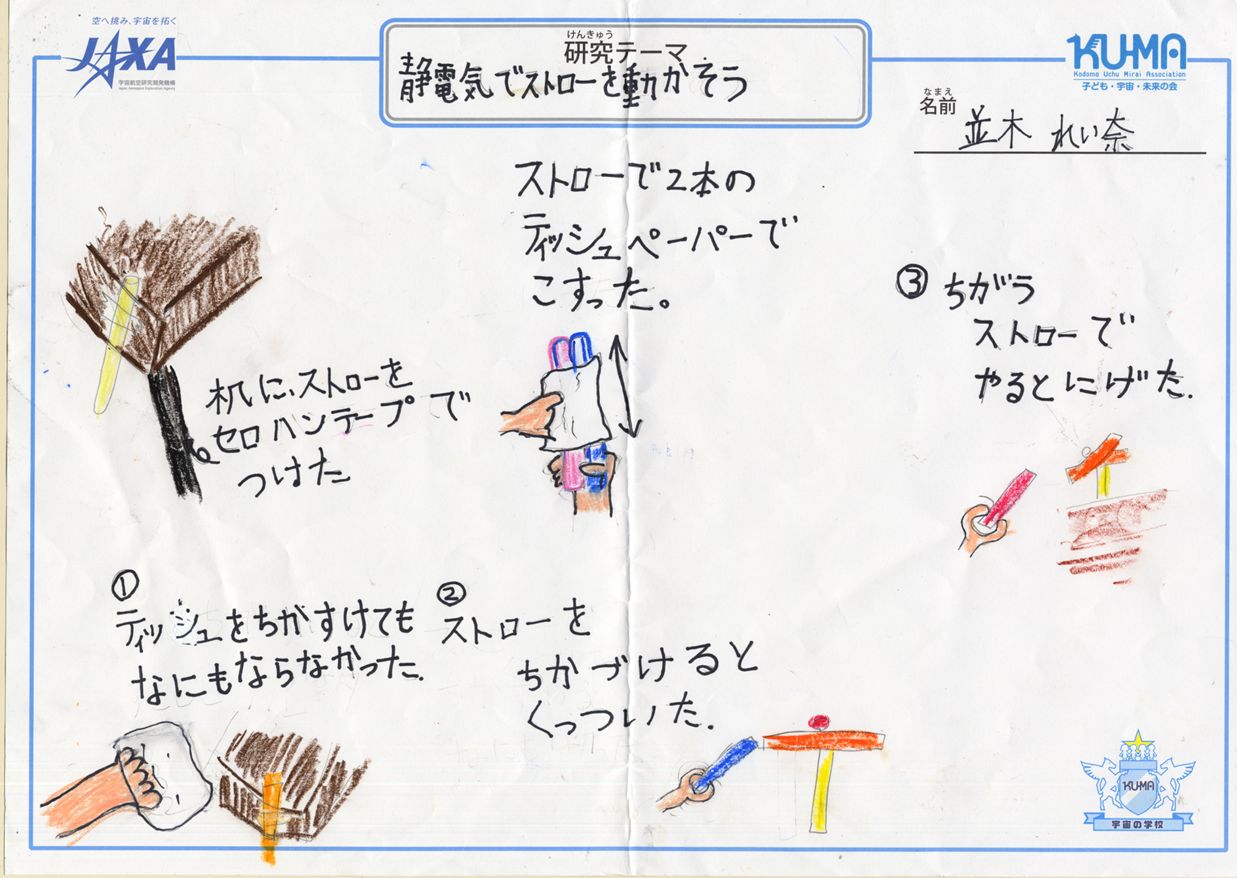 空へ挑み、宇宙を拓く
JAXA
宇宙航空研究開発機構
Japan Aerospace Exploration Agency
けんきゅう
研究テーマ
静電気でストローを動かそう
KU-MA
Kodomo Uchu Mirai Association
子ども・宇宙・未来の会
なまえ
名前
並木 れい奈
ストローで2本の
ティッシュペーパーで
こすった。
机に、ストローを
セロハンテープで
つけた
③ ちがう
ストローで
やるとにげた.
①
ティッシュをちかずけても
なにもならなかった.
②
ストローを
ちかづけると
くっついた.
KU-MA
宇宙の学校